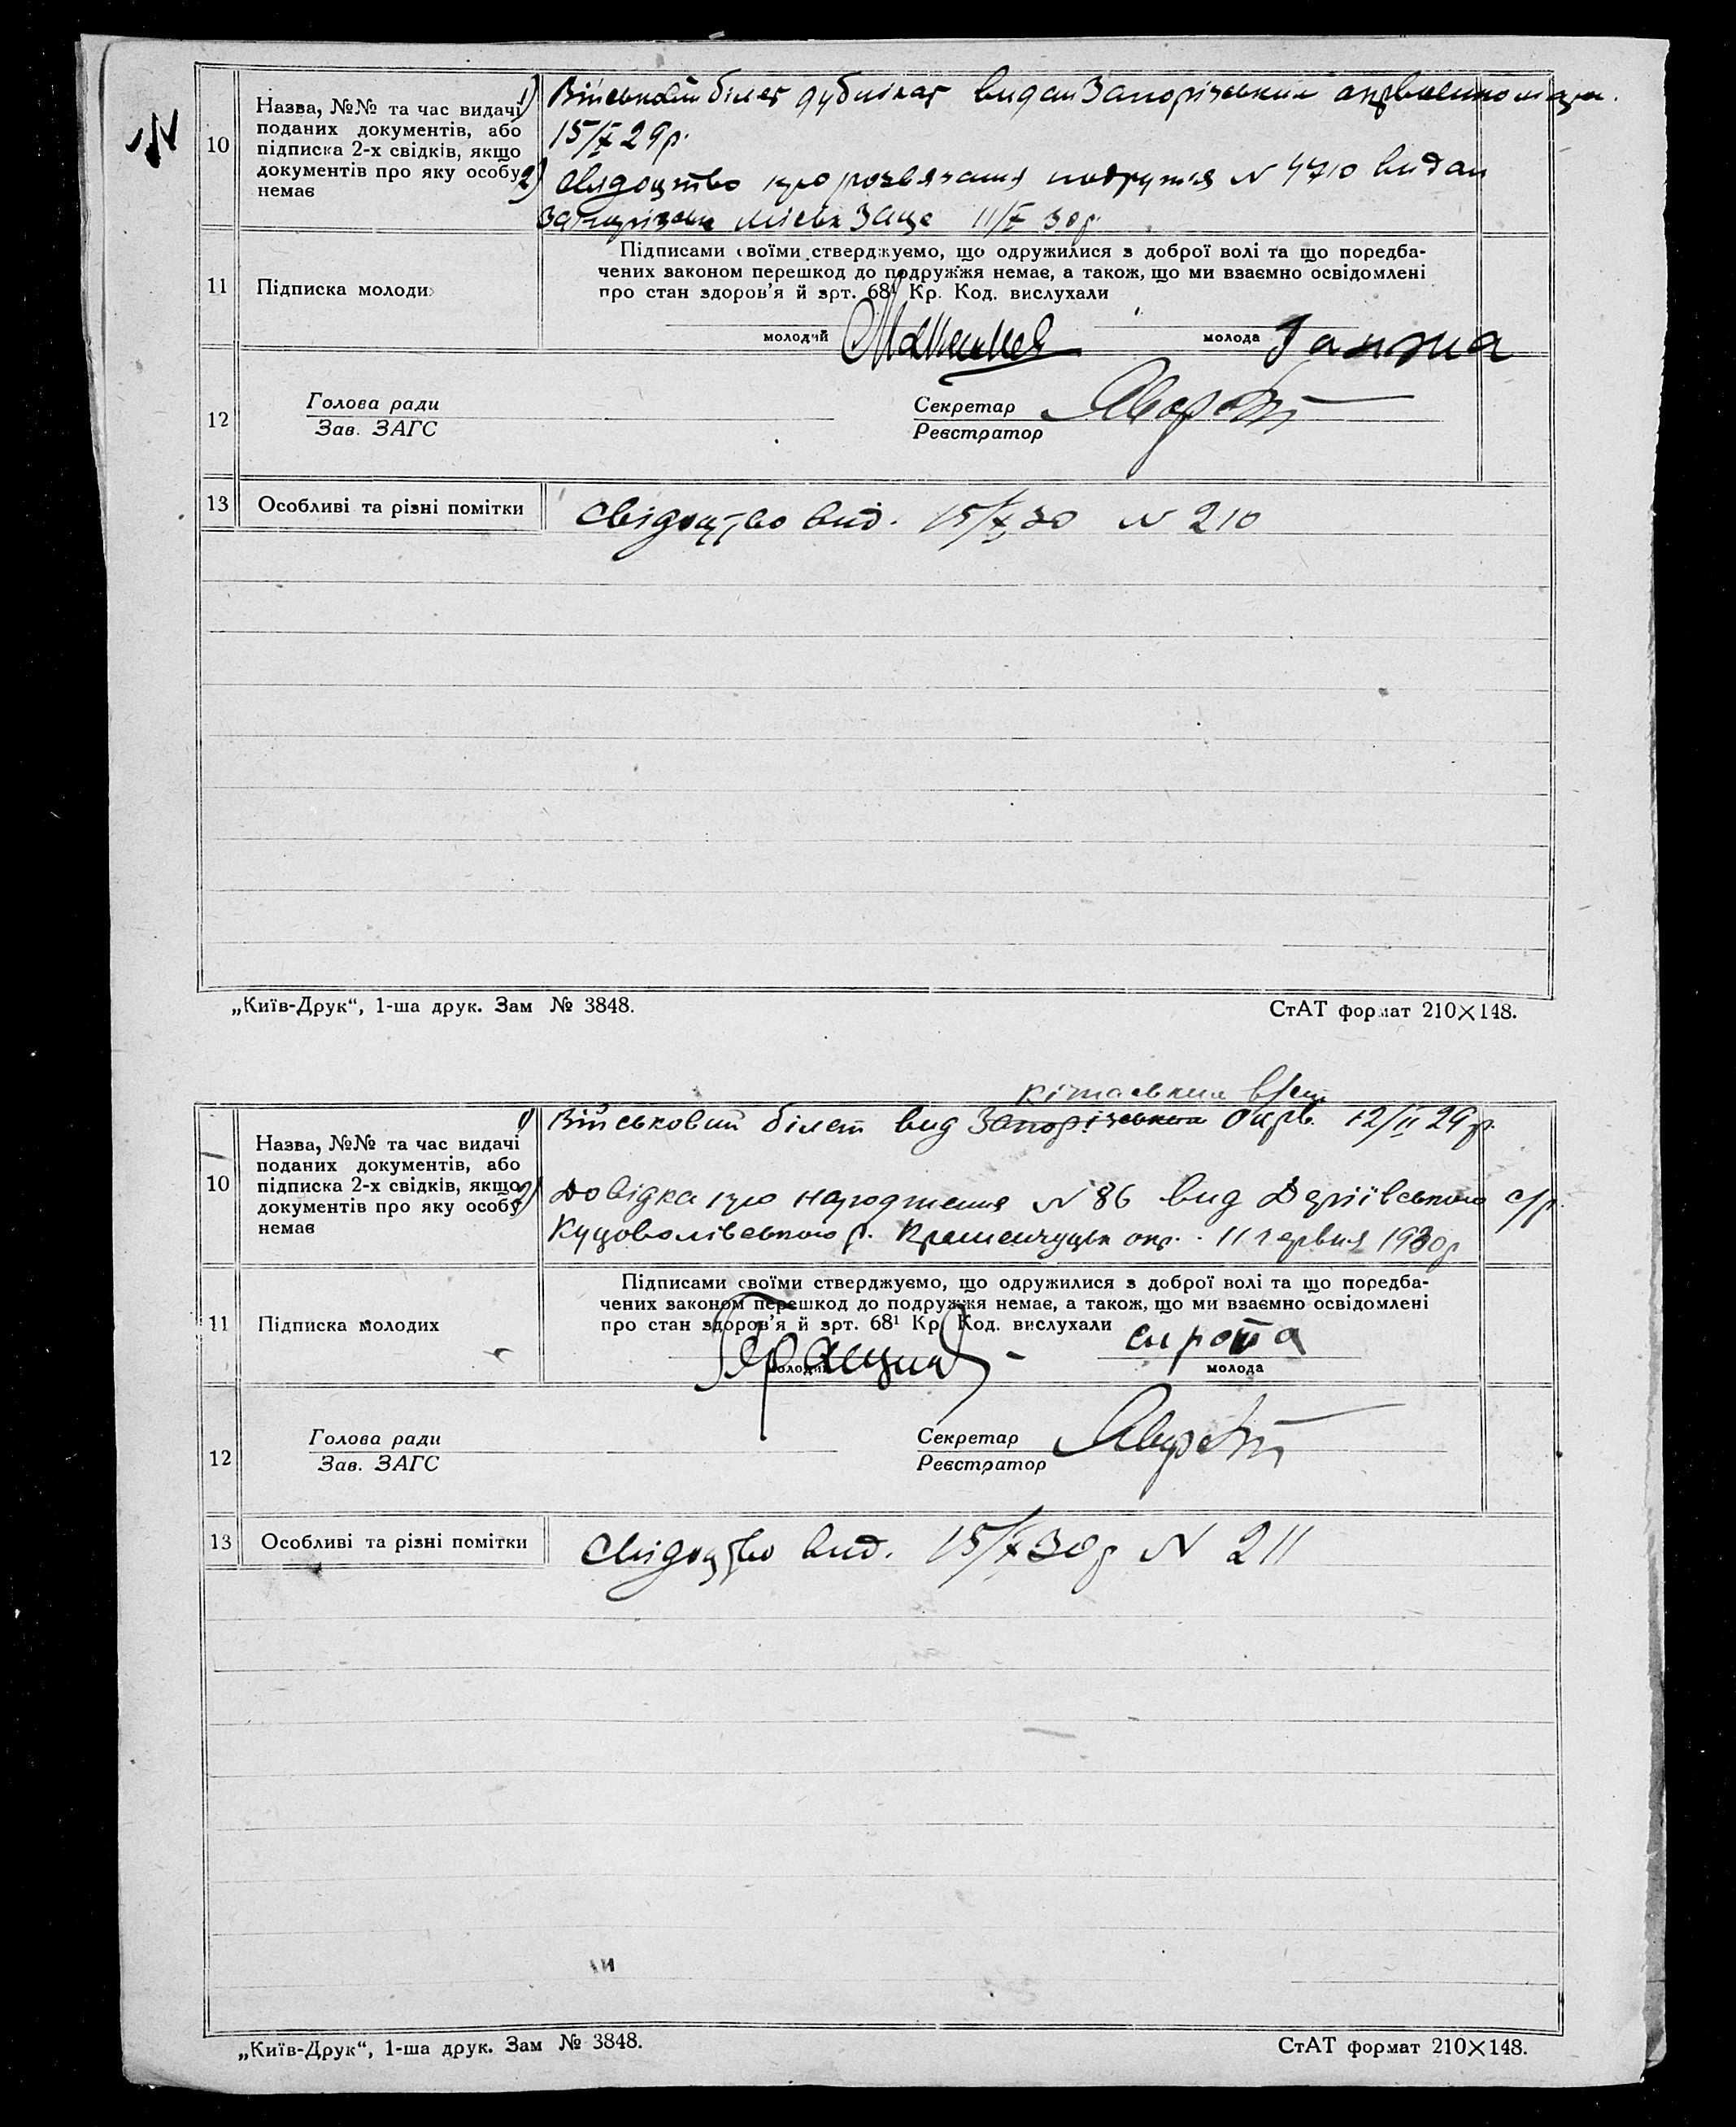 10
Назва, №№ та час видачі
поданих документів, або
підписка 2-х свідків, якщо
документів про яку особу
немає
1) Військовий білет дублікат видан Запорізьким окрвоенкоматом.
15/X 29р.
2) Свидоцтво про розвязання подружжя N 4710 видан
Запорізьке міськ Загс 11/X 30р.
11
Підписка молодих
Підписами своїми стверджуємо, що одружилися з доброї волі та що поредба-
чених законом перешкод до подружжя немає, а також, що ми взаємно освідомлені
про стан здоров'я й арт. 68¹ Кр. Код. вислухали
молодий
молода Ганжа
12
Голова ради
Зав. ЗАГС
Секретар
Реєстратор
13
Особливі та різні помітки
Свідоцтво вид. 15/X 30 N 210
„Київ-Друк“, 1-ша друк. Зам № 3848.
СтАТ формат 210×148.
10
Назва, №№ та час видачі
поданих документів, або
підписка 2-х свідків, якщо
документів про яку особу
немає
1) Військовий білет вид Запорізьким Окрв. 12/II 29р.
2) Довідка про народження N 86 вид Деріївською с/р.
Куцоволівського р. Кременчуцьк окр. 11 червня 1930р
11
Підписка молодих
Підписами своїми стверджуємо, що одружилися з доброї волі та що поредба-
чених законом перешкод до подружжя немає, а також, що ми взаємно освідомлені
про стан здоров'я й арт. 68¹ Кр. Код. вислухали
молодий
сирота
молода
12
Голова ради
Зав. ЗАГС
Секретар
Реєстратор
13
Особливі та різні помітки
Свідоцтво вид. 15/X 30р N 211
„Київ-Друк“, 1-ша друк. Зам № 3848.
СтАТ формат 210×148.